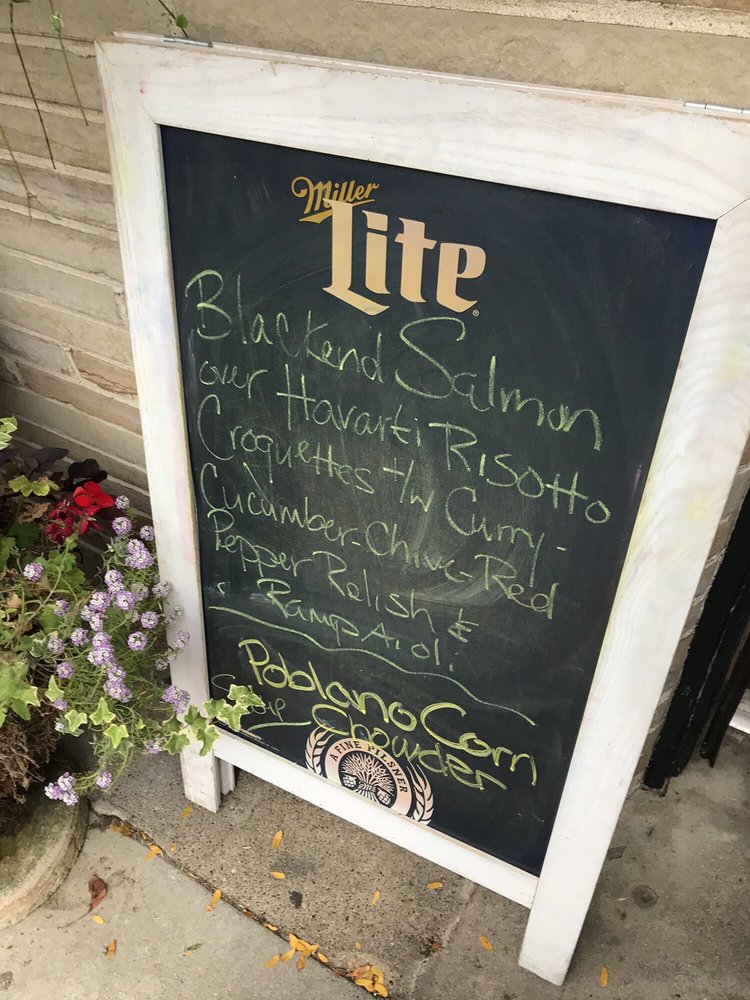 Miller
Lite
Blackend Salmon
over Havarti Risotto
Croquettes t/w Curry-
Cucumber-Chive-Red
Pepper Relish &
Ramp Aioli.
Poblano Corn
Soup Chowder
A FINE PILSNER